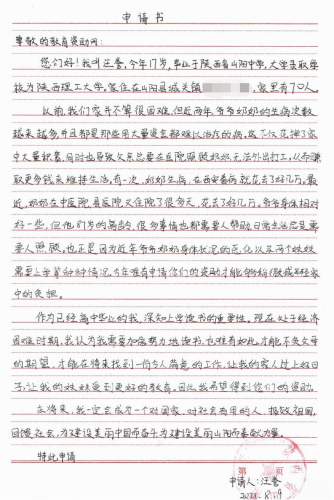 申请书
尊敬的教育资助网:
您们好!我叫汪誉,今年17岁,毕业于陕西省山阳中学,大学录取学
校为陕西理工大学,家住在山阳县城关镇 家里有7口人。
以前,我们家并不算很困难,但近两年爷爷奶奶的生病次数
越来越多,并且都是那些用大量资金都难以治疗的病,这不仅花掉了家
中大量积蓄,同时也导致父亲总要在医院照顾奶奶无法外出打工,从而赚
取更多钱来维持生活。有一次,奶奶生病,在西安看病就花去了好几万。最
近,奶奶在中医院县医院又住院了很多天,花去了好几万。爷爷身体相对
好一些,但他81岁的高龄,很多事情也都需要人帮助日常生活总是需
要人照顾。也正是因为近年爷爷奶奶身体状况的恶化以及两个妹妹
需要上学等种种情况,今年唯有申请你们的资助才能够稍微减轻家
中的负担。
作为已经高中毕业的我,深知上学读书的重要性。现在处于经济
困难时期,我认为我需要加倍努力地读书,也唯有如此,才能不负父母
的期望,才能在将来找到一份令人满意的工作,让我的家人过上好日
子,让我的妹妹受到更好的教育。因此我希望得到您们的资助。
在将来,我一定会成为一个对国家,对社会有用的人,报效祖国,
回馈社会,为建设美丽中国而奋斗为建设美丽山阳而奉献力量。
特此申请
第 页
申请人:汪誉
8.19